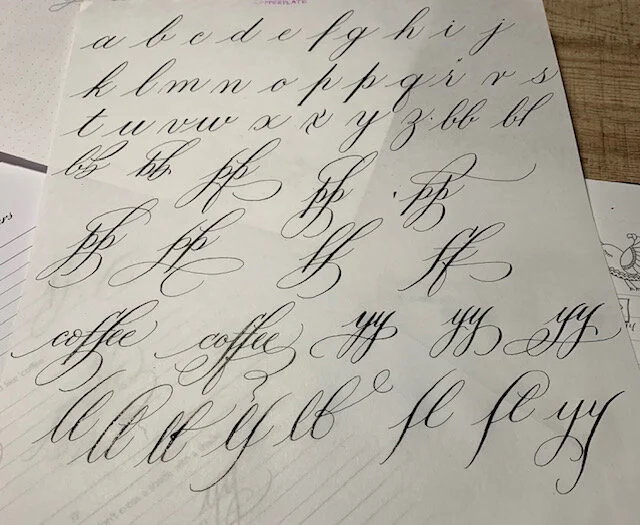 COPPERPLATE
a b c d e f g h i j
k l m n o p p q r r s
t u v w x x y z bb bl
bb bb pp pp pp
pp pp ff ff
coffee coffee yy yy yy
ll ll ll lf lb fl fl yy